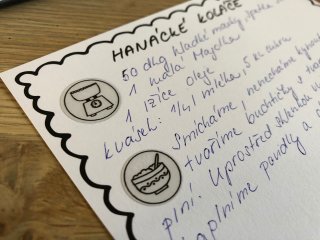 HANÁCKÉ KOLÁČE
50 dkg hladké mouky, špetka
1 malá Majolka
1 lžíce oleje
kvásek: 1/4l mléka, 5 kl. cukru
Smícháme, nenecháme kynout
tvoříme buchtičky s tvar
plní. Uprostřed skleničkou
naplníme povidly a